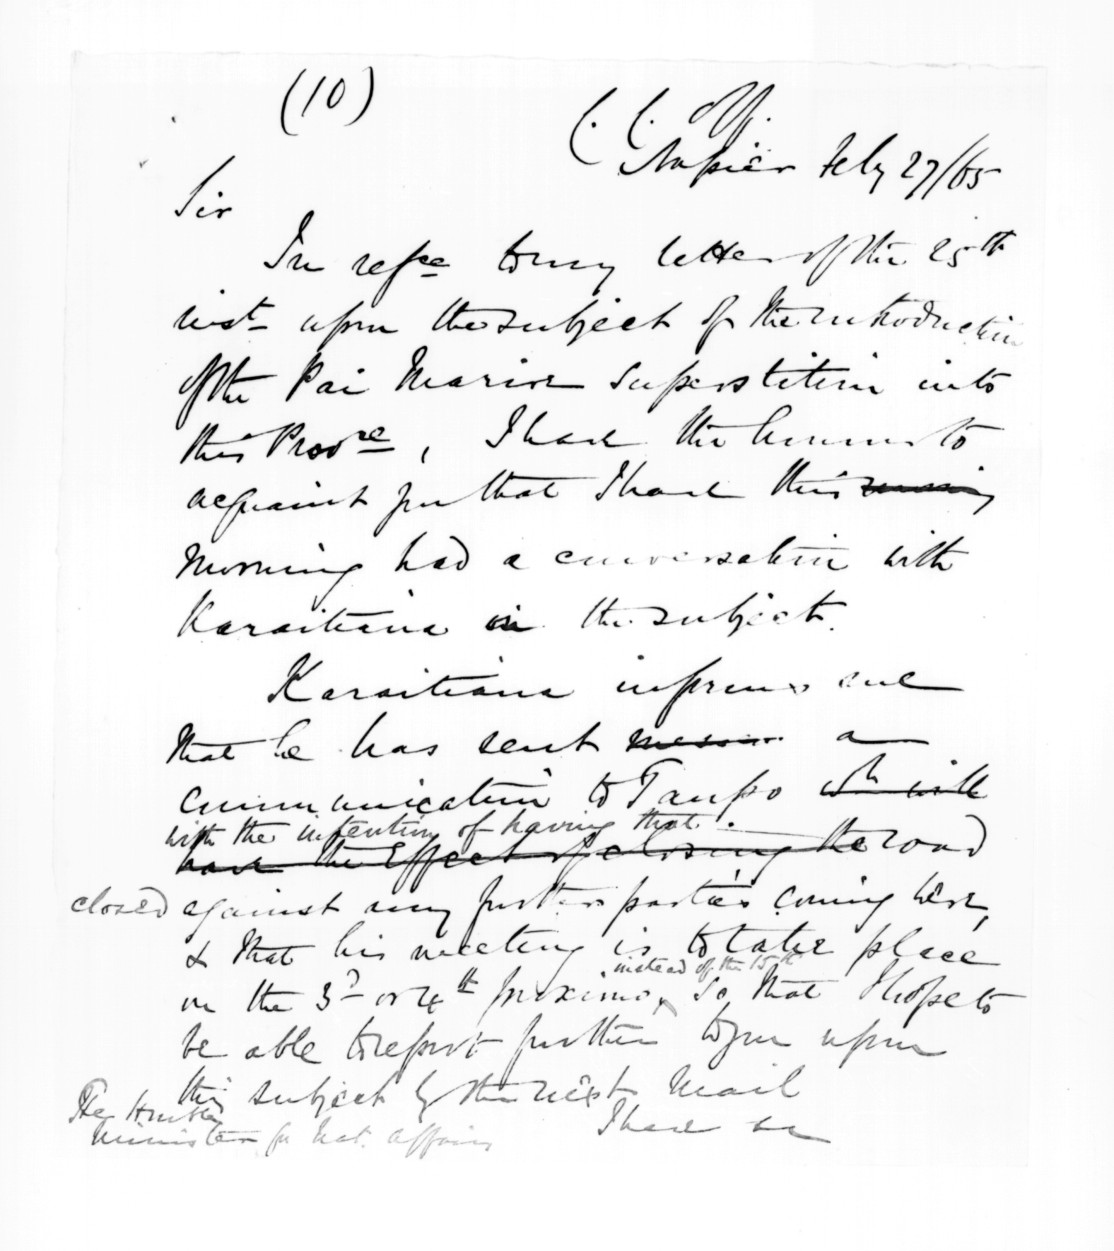 (10)
C. C. Off.
Napier Feby 27/65
Sir
In refce to my letter of the 25th
inst upon the subject of the introduction
of the Pai Marire superstition into
this Provce, I have the honor to
acquaint you that I have this
morning had a conversation with
Karaitiana on the subject.
Karaitiana informs me
that he has sent messr a
communication to Taupo wh will
with the intention of having that
have the effect of closing the road
closed against any further parties coming here,
& that his meeting is to take place
instead of the 15th
on the 3d or 4th proximo, so that I hope to
be able to report further to you upon
this subject by the next mail
The Honble
I have &c
Minister for Nat. Affairs